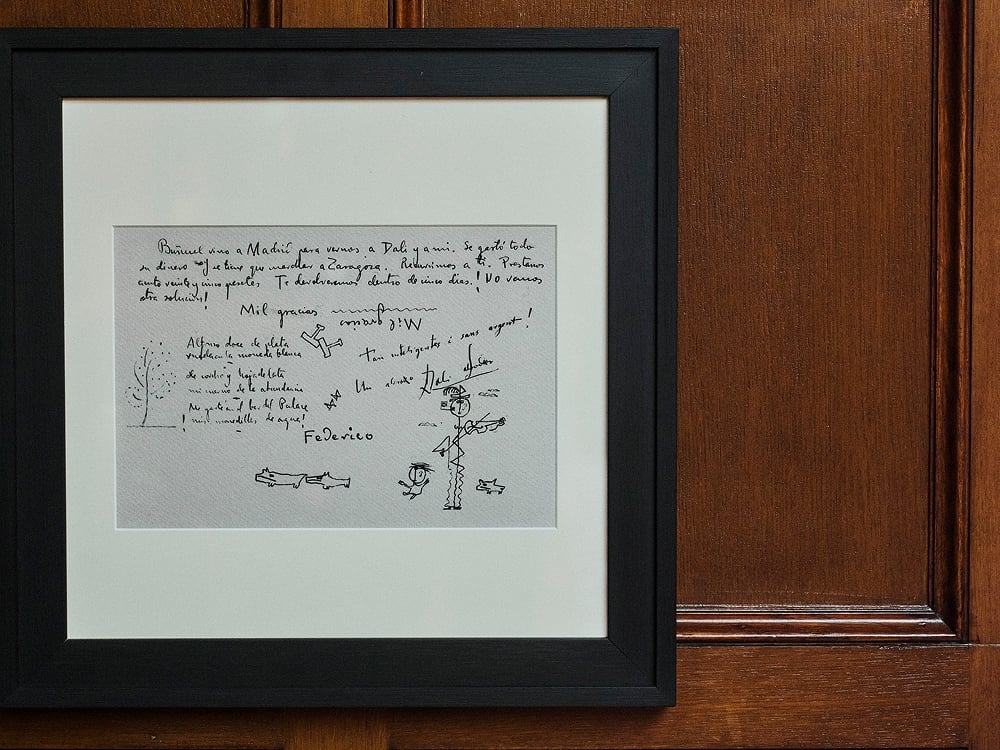 Buñuel vino a Madrid para vernos a Dalí y a mi. Se gastó todo
su dinero y se tiene que marchar a Zaragoza. Recurrimos a ti. Prestanos
ciento veinte y cinco pesetas Te devolveremos dentro de cinco dias. ! No vemos
otra solución!
Mil gracias
Mil gracias
Alfonso doce de plata
rueda en la moneda blanca
de corcho y hojadelata
mi cuerno de la abundancia
Me gasté en el bar del Palace
! mis monedillas de agua!
Tan inteligentes i sans argent!
Un abrazo Dalí Salvador
Federico